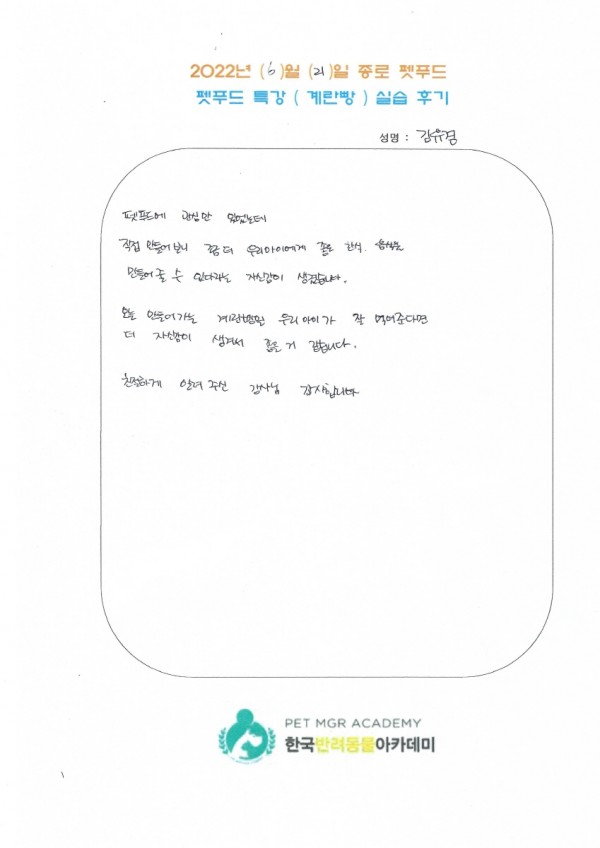 2022년 (6)월 (21)일 종로 펫푸드
펫푸드 특강 ( 계란빵 ) 실습 후기
성명 : 김유겸
펫푸드에 관심만 있었는데
직접 만들어보니 좀 더 우리아이에게 좋은 간식. 음식을
만들어 줄 수 있다라는 자신감이 생겼습니다.
오늘 만들어가는 계란빵을 우리 아이가 잘 먹어준다면
더 자신감이 생겨서 좋을 거 같습니다.
친절하게 알려 주신 강사님 감사합니다
PET MGR ACADEMY
한국반려동물아카데미